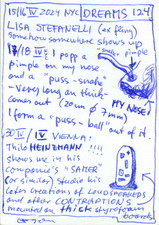 15/16 IV 2024 NYC DREAMS 124
LISA STEFANELLI (ex fling)
somehow somewhere shows up
17/18 IV: I popp a pimple
pimple on my nose
and a "puss-snake"
- very long an thick-
comes out (20cm ø 7mm)
I form a "puss-ball" out of it.
MY NOSE
30 IV / V VIENNA:
Thilo HEINZMANN !!!!
shows me in his
companie's "SAMER
(or similar) studio his
latex creations of LOUDSPEAKERS
and other CONTRAPTIONS
mounted on thick styrofoam
boards